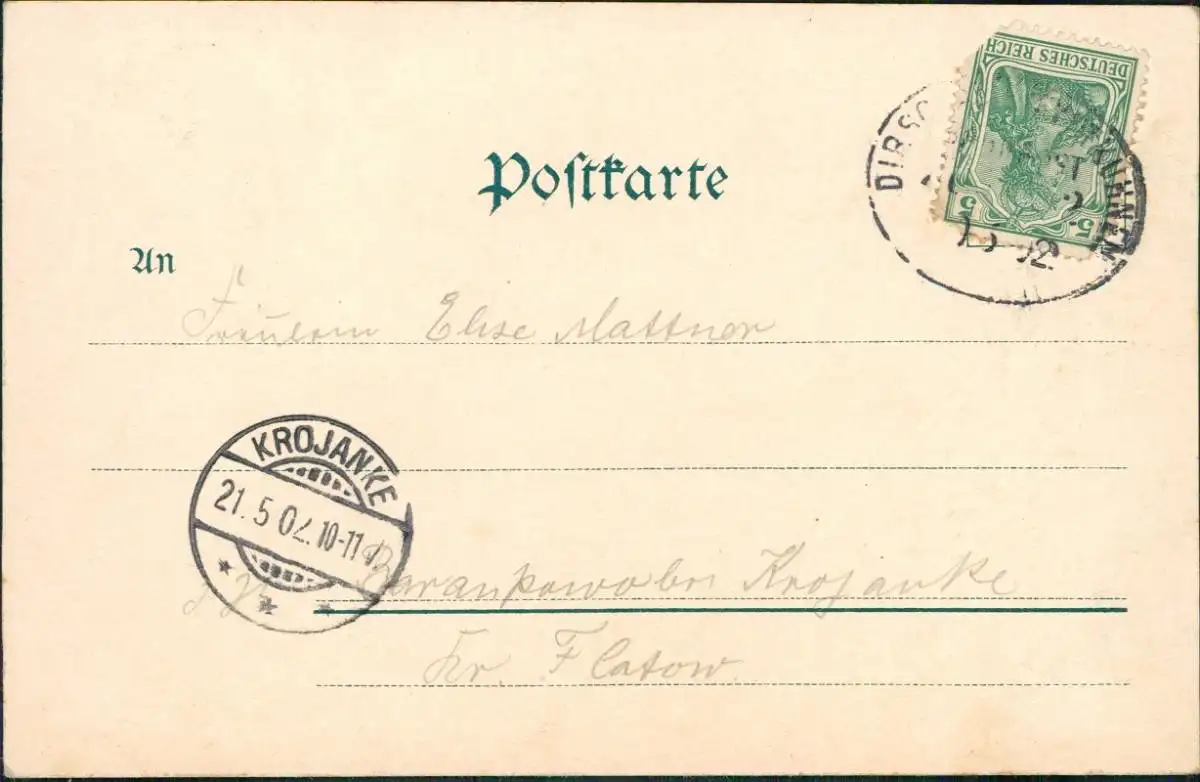 DEUTSCHES REICH
5 5
DIRSC
Postkarte
An
Fräulein Elise Mattner
KROJANKE
21.5 02. 10-11
Barankowo bei Krojanke
Kr. Flatow